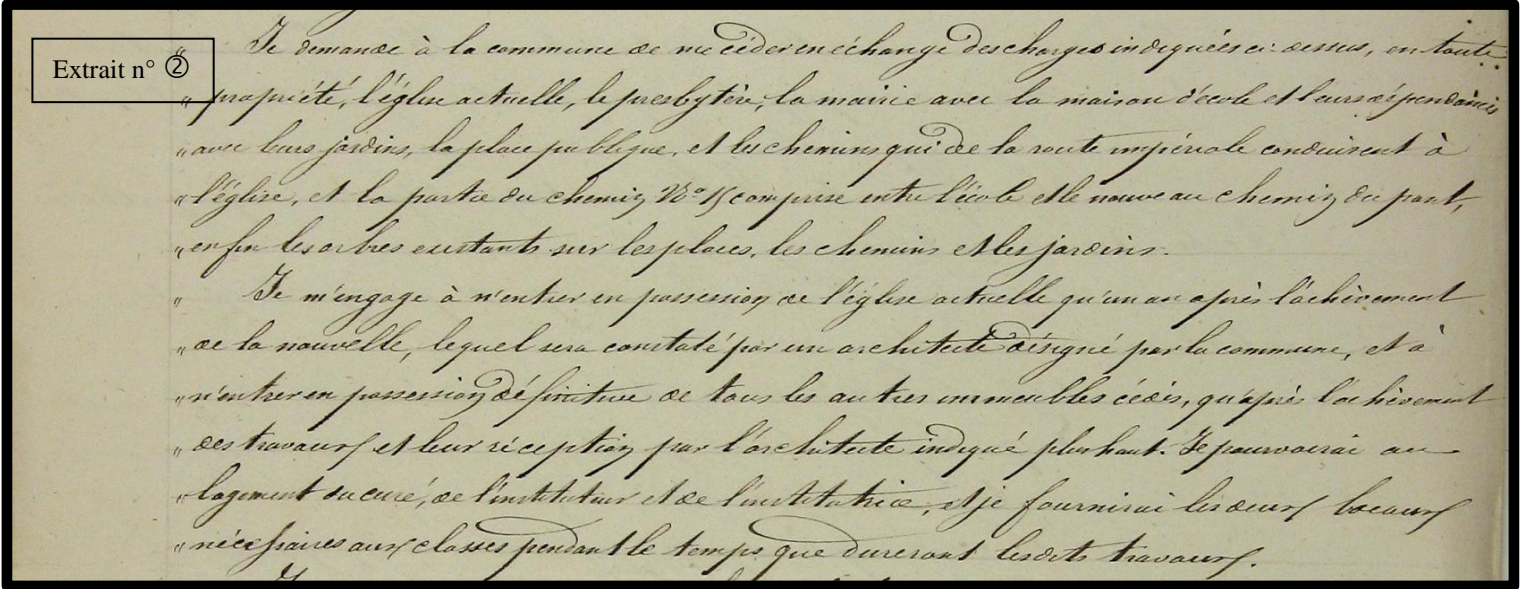 Extrait n° ②
" Je demande à la commune de me céder en échange des charges indiquées ci-dessus, en toute
" propriété, l'église actuelle, le presbytère, la mairie avec la maison d'école et leurs dépendances
" avec leurs jardins, la place publique, et les chemins qui de la route impériale conduisent à
" l'église, et la partie du chemin N° 15 comprise entre l'école et le nouveau chemin du pont,
" enfin les arbres existants sur les places, les chemins et les jardins.
" Je m'engage à n'entrer en possession de l'église actuelle qu'un an après l'achèvement
" de la nouvelle, lequel sera constaté par un architecte désigné par la commune, et à
" n'entrer en possession définitive de tous les autres immeubles cédés, qu'après l'achèvement
" des travaux et leur réception par l'architecte indiqué plus haut. Je pourvoirai au
" logement du curé, de l'instituteur et de l'institutrice, et je fournirai les deux locaux
" nécessaires aux classes pendant le temps que dureront lesdits travaux.